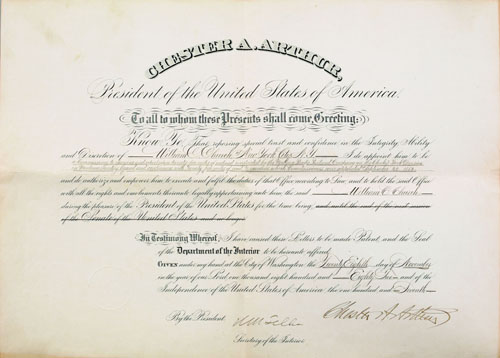 CHESTER A. ARTHUR,
President of the United States of America.
To all to whom these Presents shall come, Greeting:
Know Ye, That reposing special trust and confidence in the Integrity Ability
and Discretion of William C. Church, New York City, N.Y. I do appoint him to be
and do authorize and empower him to execute and fulfil the duties of that Office according to Law, and to hold the said Office
with all the rights and emoluments thereunto legally appertaining unto him the said William C. Church
during the pleasure of the President of the United States for the time being, and until the end of the
of the Senate of the United States and no longer.
In Testimony Whereof, I have caused these Letters to be made Patent, and the Seal
of the Department of the Interior to be hereunto affixed.
GIVEN under my hand at the City of Washington the Twenty Eighth day of November
in the year of our Lord one thousand eight hundred and Eighty Two and of the
Independence of the United States of America the one hundred and Seventh.
By the President:
Chester A. Arthur
Secretary of the Interior.